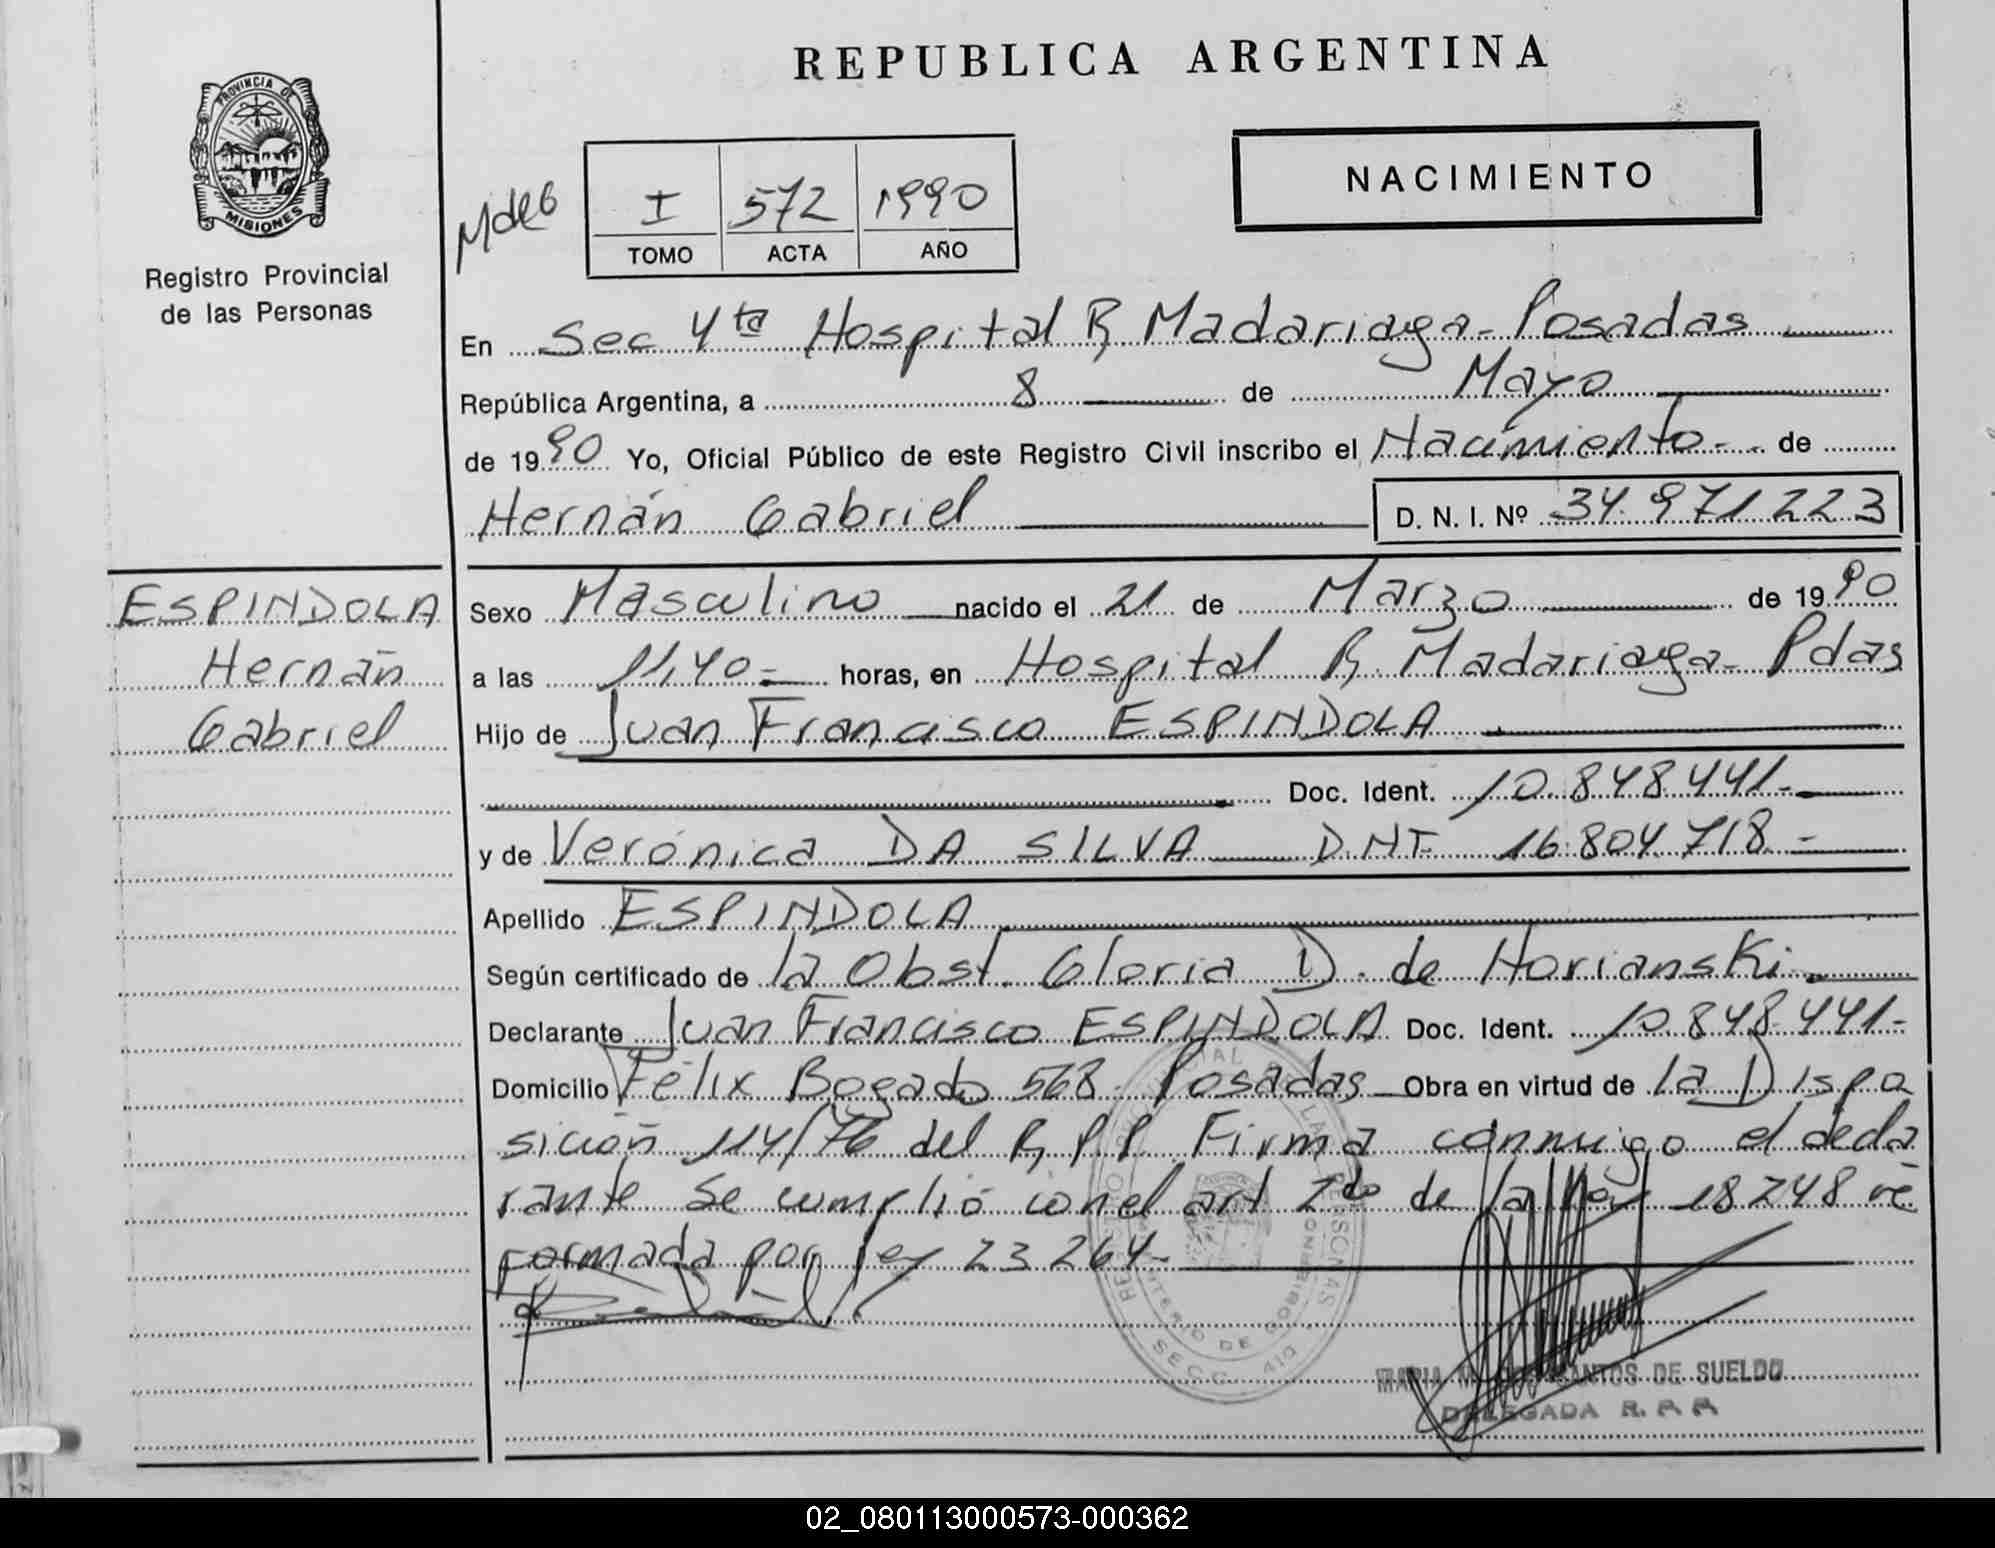 REPUBLICA ARGENTINA
PROVINCIA DE
MISIONES
Registro Provincial
de las Personas
I 572 1990
TOMO ACTA AÑO
NACIMIENTO
En Sec 4ta Hospital R Madariaga - Posadas
República Argentina, a 8 de Mayo
de 1990 Yo, Oficial Público de este Registro Civil inscribo el Nacimiento - de
Hernán Gabriel D. N. I. Nº 34.971.223
ESPINDOLA
Hernán
Gabriel
Sexo Masculino nacido el 21 de Marzo de 1990
a las 11,40 - horas, en Hospital R. Madariaga - Pdas
Hijo de Juan Francisco ESPINDOLA
Doc. Ident. 10.848.441 -
y de Verónica DA SILVA D.N.I. 16.804.718 -
Apellido ESPINDOLA
Según certificado de la Obst. Gloria D. de Horianski -
Declarante Juan Francisco ESPINDOLA Doc. Ident. 10.848.441 -
Domicilio Félix Bogado 568 Posadas Obra en virtud de la Dispo
sición 114/76 del R.P.P. Firma conmigo el decla
rante Se cumplió con el art 2do de la ley 18248 re
formada por ley 23264 -
SECC. 410
MINISTERIO DE GOBIERNO
MARIA SANTOS DE SUELDO
DELEGADA R. P. P.
02_080113000573-000362